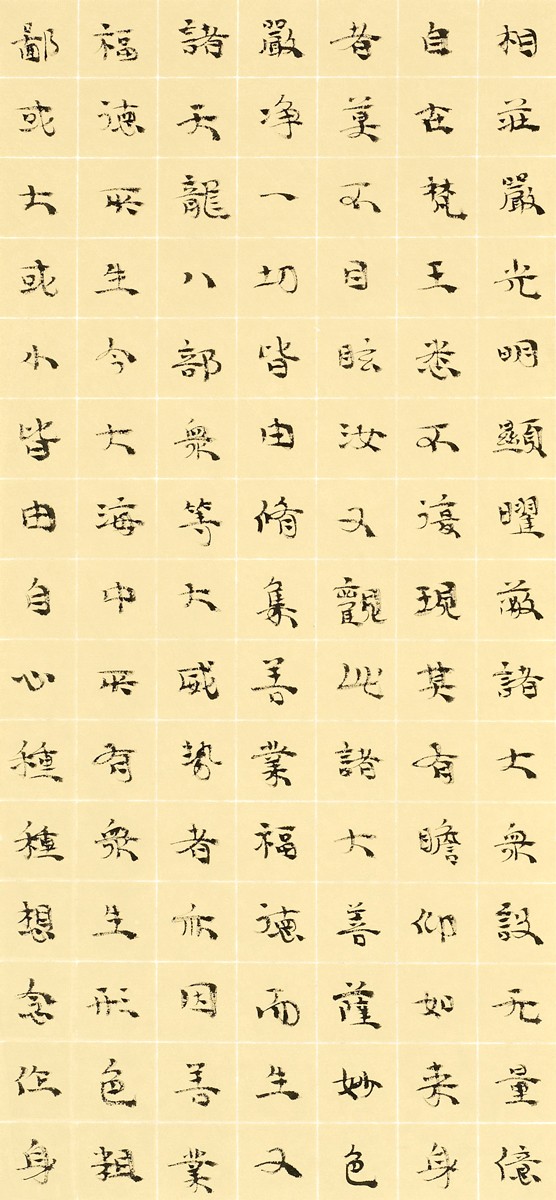 相莊嚴光明顯曜蔽諸大衆設无量億
自在梵王悉不復現其有瞻仰如来身
者豈不目眩汝又觀此諸大菩薩妙色
嚴净一切皆由脩集善業福德而生又
諸天龍八部衆等大威勢者亦因善業
福德所生今大海中所有衆生形色粗
鄙或大或小皆由自心種種想念作身